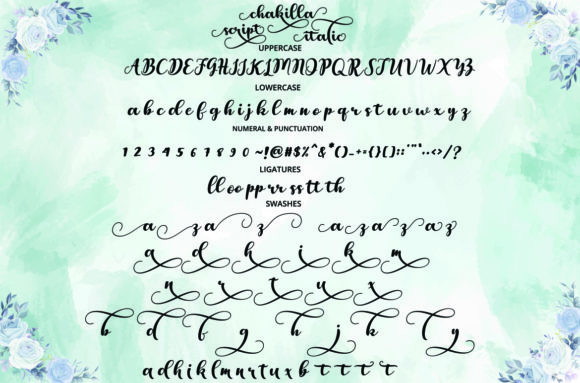 chakilla
script italic
UPPERCASE
ABCDEFGHIJKLMNOPQRSTUVWXYZ
LOWERCASE
a b c d e f g h i j k l m n o p q r s t u v w x y z
NUMERAL & PUNCTUATION
1 2 3 4 5 6 7 8 9 0 ~!@#$%^&*()_-+={}[]:;"'",.<>/?
LIGATURES
ll oo pp rr ss tt th
SWASHES
a z a z a z a z a z
a d h i k m
n r t u x
b d f g h j k l y
a d h i k l m n r t u x b t t t t